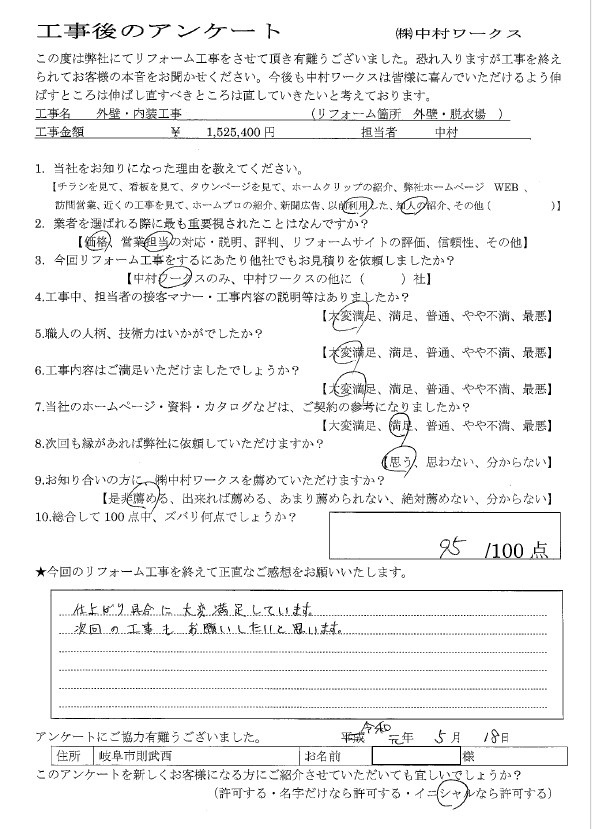 工事後のアンケート ㈱中村ワークス
この度は弊社にてリフォーム工事をさせて頂き有難うございました。恐れ入りますが工事を終え
られてお客様の本音をお聞かせください。今後も中村ワークスは皆様に喜んでいただけるよう伸
ばすところは伸ばし直すべきところは直していきたいと考えております。
工事名 外壁・内装工事 (リフォーム箇所 外壁・脱衣場 )
工事金額 ¥ 1,525,400円 担当者 中村
1. 当社をお知りになった理由を教えてください。
【チラシを見て、看板を見て、タウンページを見て、ホームクリップの紹介、弊社ホームページ WEB、
訪問営業、近くの工事を見て、ホームプロの紹介、新聞広告、以前利用した、知人の紹介、その他( )】
2. 業者を選ばれる際に最も重要視されたことはなんですか?
【価格、営業担当の対応・説明、評判、リフォームサイトの評価、信頼性、その他】
3. 今回リフォーム工事をするにあたり他社でもお見積りを依頼しましたか?
【中村ワークスのみ、中村ワークスの他に( )社】
4.工事中、担当者の接客マナー・工事内容の説明等はありましたか?
【大変満足、満足、普通、やや不満、最悪】
5.職人の人柄、技術力はいかがでしたか?
【大変満足、満足、普通、やや不満、最悪】
6.工事内容はご満足いただけましたでしょうか?
【大変満足、満足、普通、やや不満、最悪】
7.当社のホームページ・資料・カタログなどは、ご契約の参考になりましたか?
【大変満足、満足、普通、やや不満、最悪】
8.次回も縁があれば弊社に依頼していただけますか?
【思う、思わない、分からない】
9.お知り合いの方に、㈱中村ワークスを薦めていただけますか?
【是非薦める、出来れば薦める、あまり薦められない、絶対薦めない、分からない】
10.総合して100点中、ズバリ何点でしょうか?
95 /100点
★今回のリフォーム工事を終えて正直なご感想をお願いいたします。
仕上がり具合に大変満足しています。
次回の工事もお願いしたいと思います。
アンケートにご協力有難うございました。 平成 令和 元年 5月 18日
住所 岐阜市則武西 お名前 様
このアンケートを新しくお客様になる方にご紹介させていただいても宜しいでしょうか?
(許可する・名字だけなら許可する・イニシャルなら許可する)